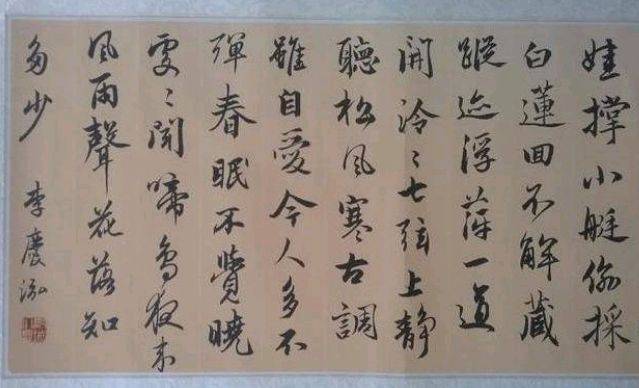 娃撑小艇偷採
白蓮回不解藏
蹤迹浮萍一道
開泠〻七弦上静
聽松風寒古調
雖自愛今人多不
彈春眠不覺曉
處〻聞啼鳥夜来
風雨聲花落知
多少
李慶泓